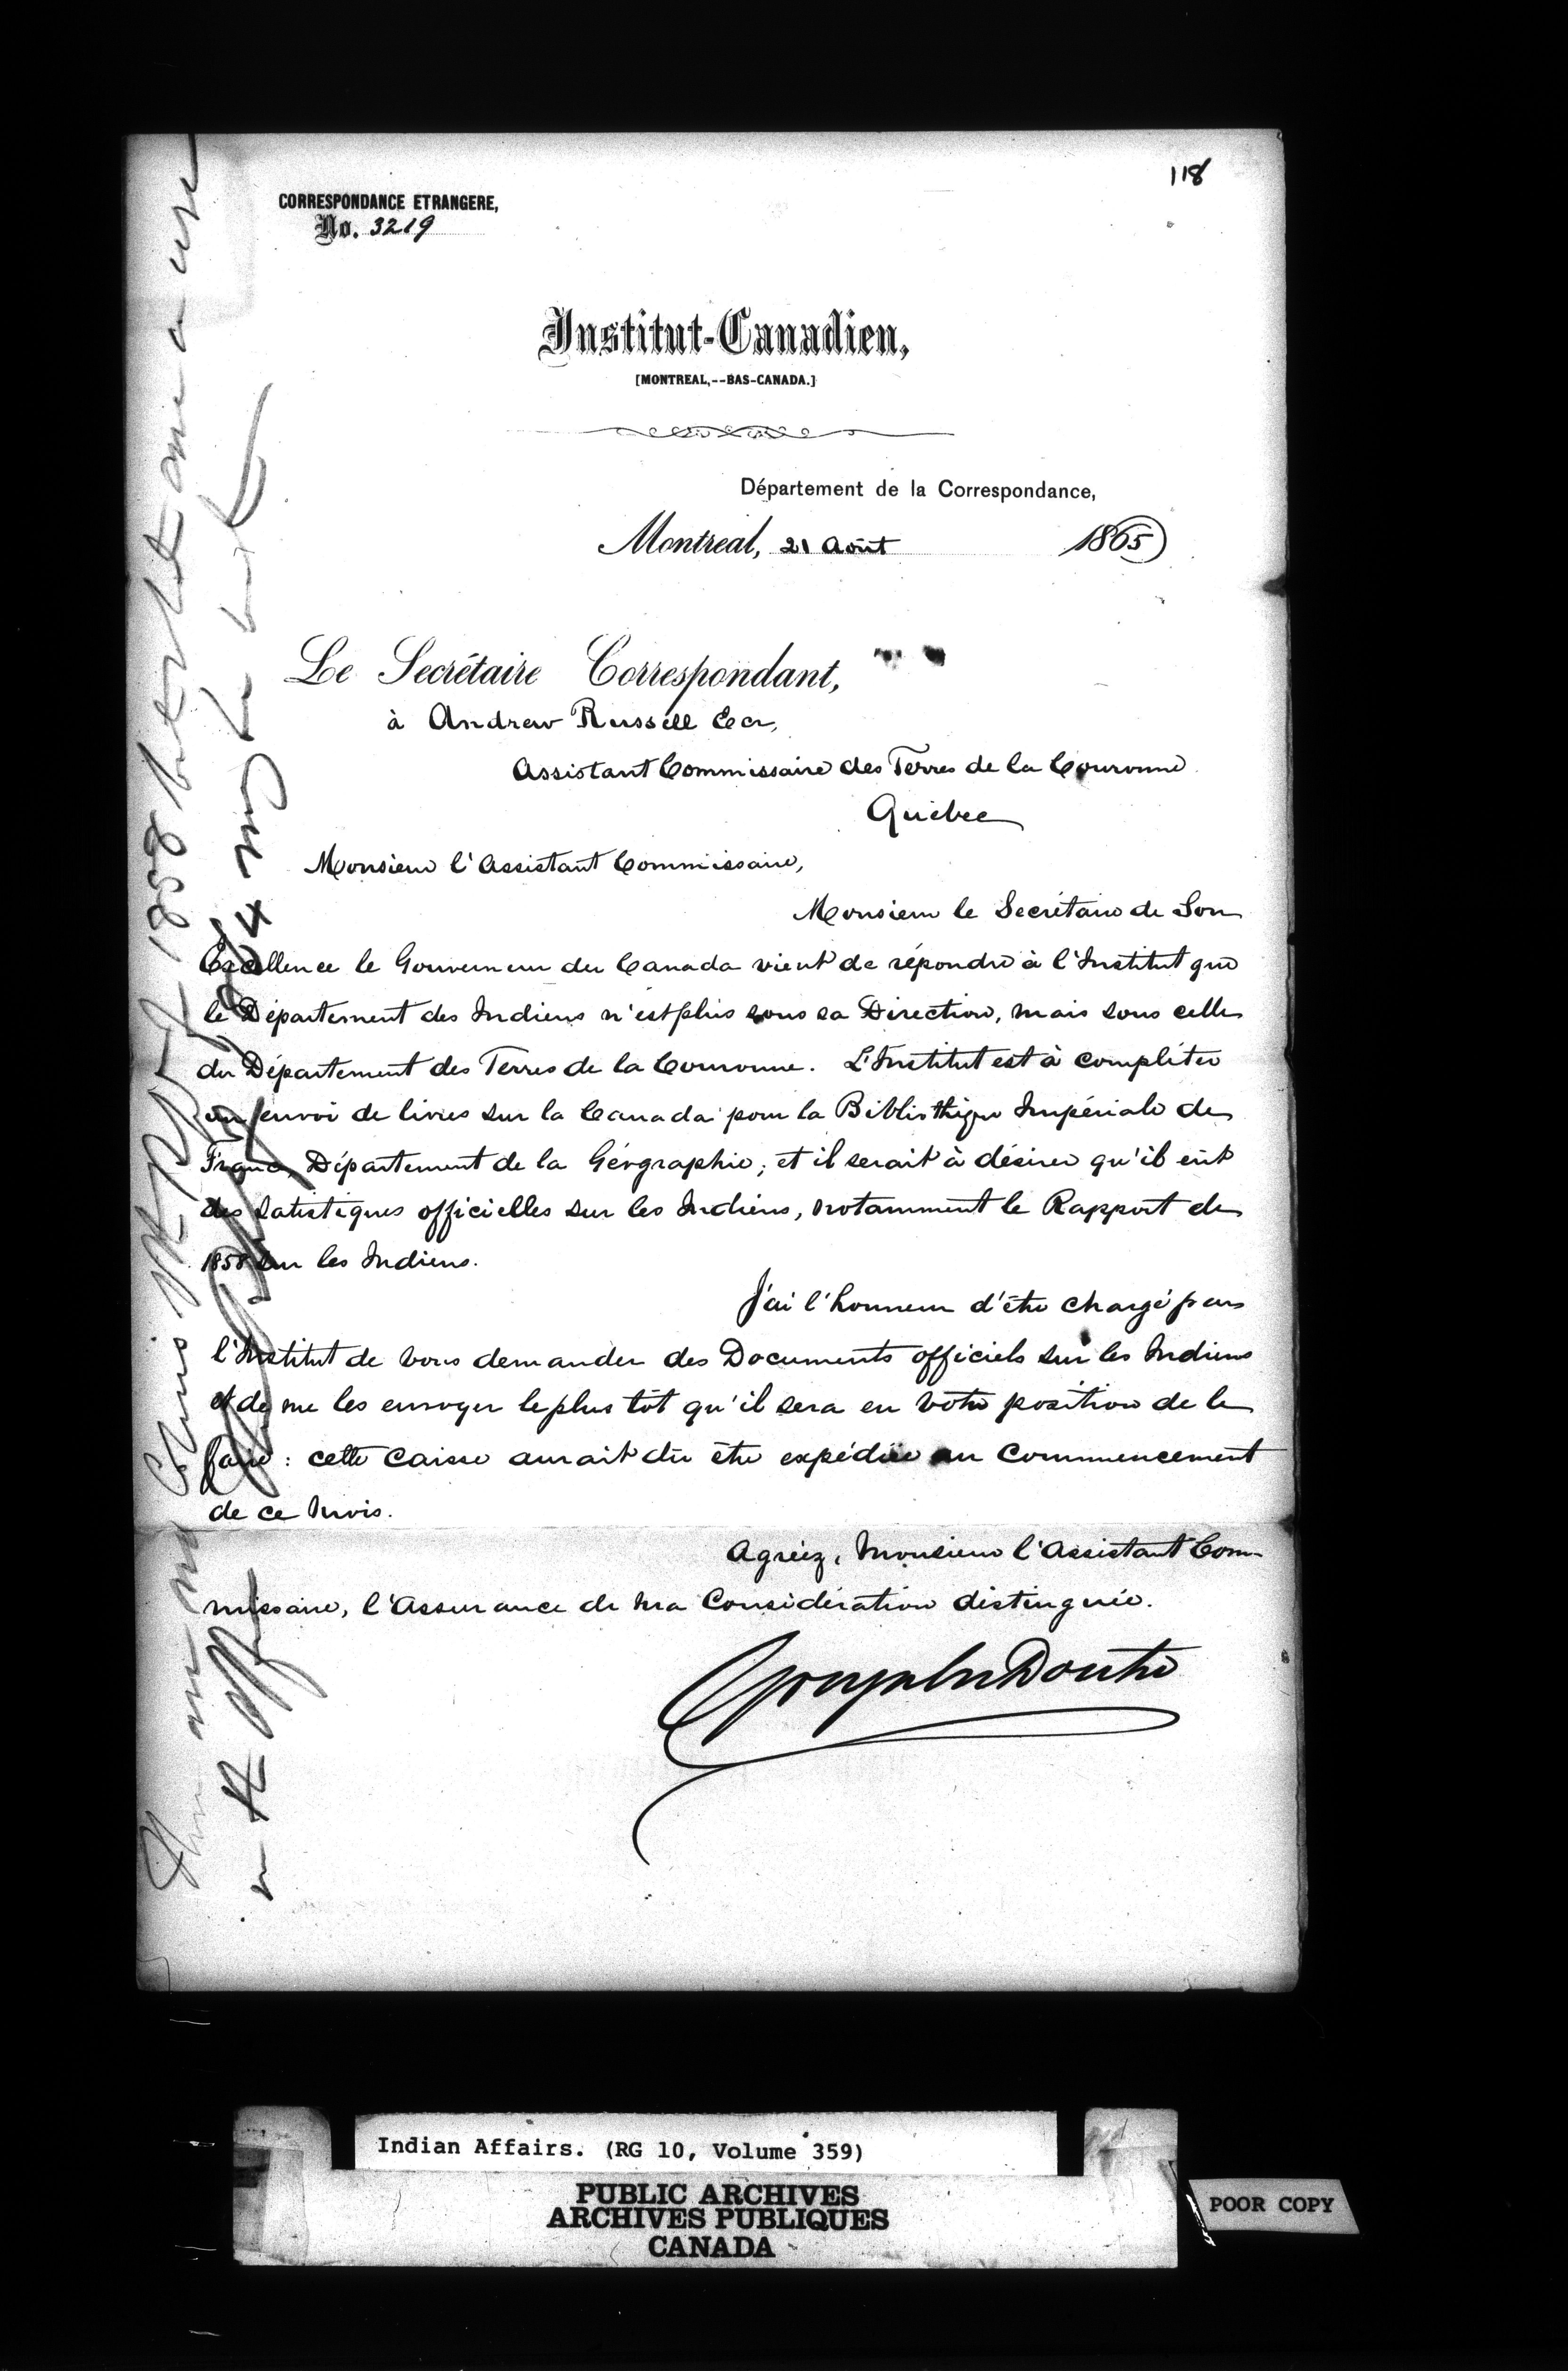 118
CORRESPONDANCE ETRANGERE,
No. 3219
Institut-Canadien,
[MONTREAL,--BAS-CANADA.]
Département de la Correspondance,
Montreal, 21 Août 1865
Le Secrétaire Correspondant,
à Andrew Russell Ecr,
Assistant Commissaire des Terres de la Couronne
Québec
Monsieur l'Assistant Commissaire,
Monsieur le Secrétaire de Son
Excellence le Gouverneur du Canada vient de répondre à l'Institut que
le Département des Indiens n'est plus sous sa Direction, mais sous celle
du Département des Terres de la Couronne. L'Institut est à compléter
un envoi de livres sur le Canada pour la Bibliothèque Impériale de
France, Département de la Géographie; et il serait à désirer qu'il eût
des Satistiques officielles sur les Indiens, notamment le Rapport de
1858 sur les Indiens.
J'ai l'honneur d'être chargé par
l'Institut de vous demander des Documents officiels sur les Indiens
et de me les envoyer le plus tôt qu'il sera en votre position de le
faire : cette caisse aurait du être expédiée au commencement
de ce mois.
Agréez, Monsieur l'Assistant Com-
missaire, l'Assurance de ma Considération distinguée.
Gonzalve Doutre
1858
Indian Affairs. (RG 10, Volume 359)
PUBLIC ARCHIVES
ARCHIVES PUBLIQUES
CANADA
POOR COPY